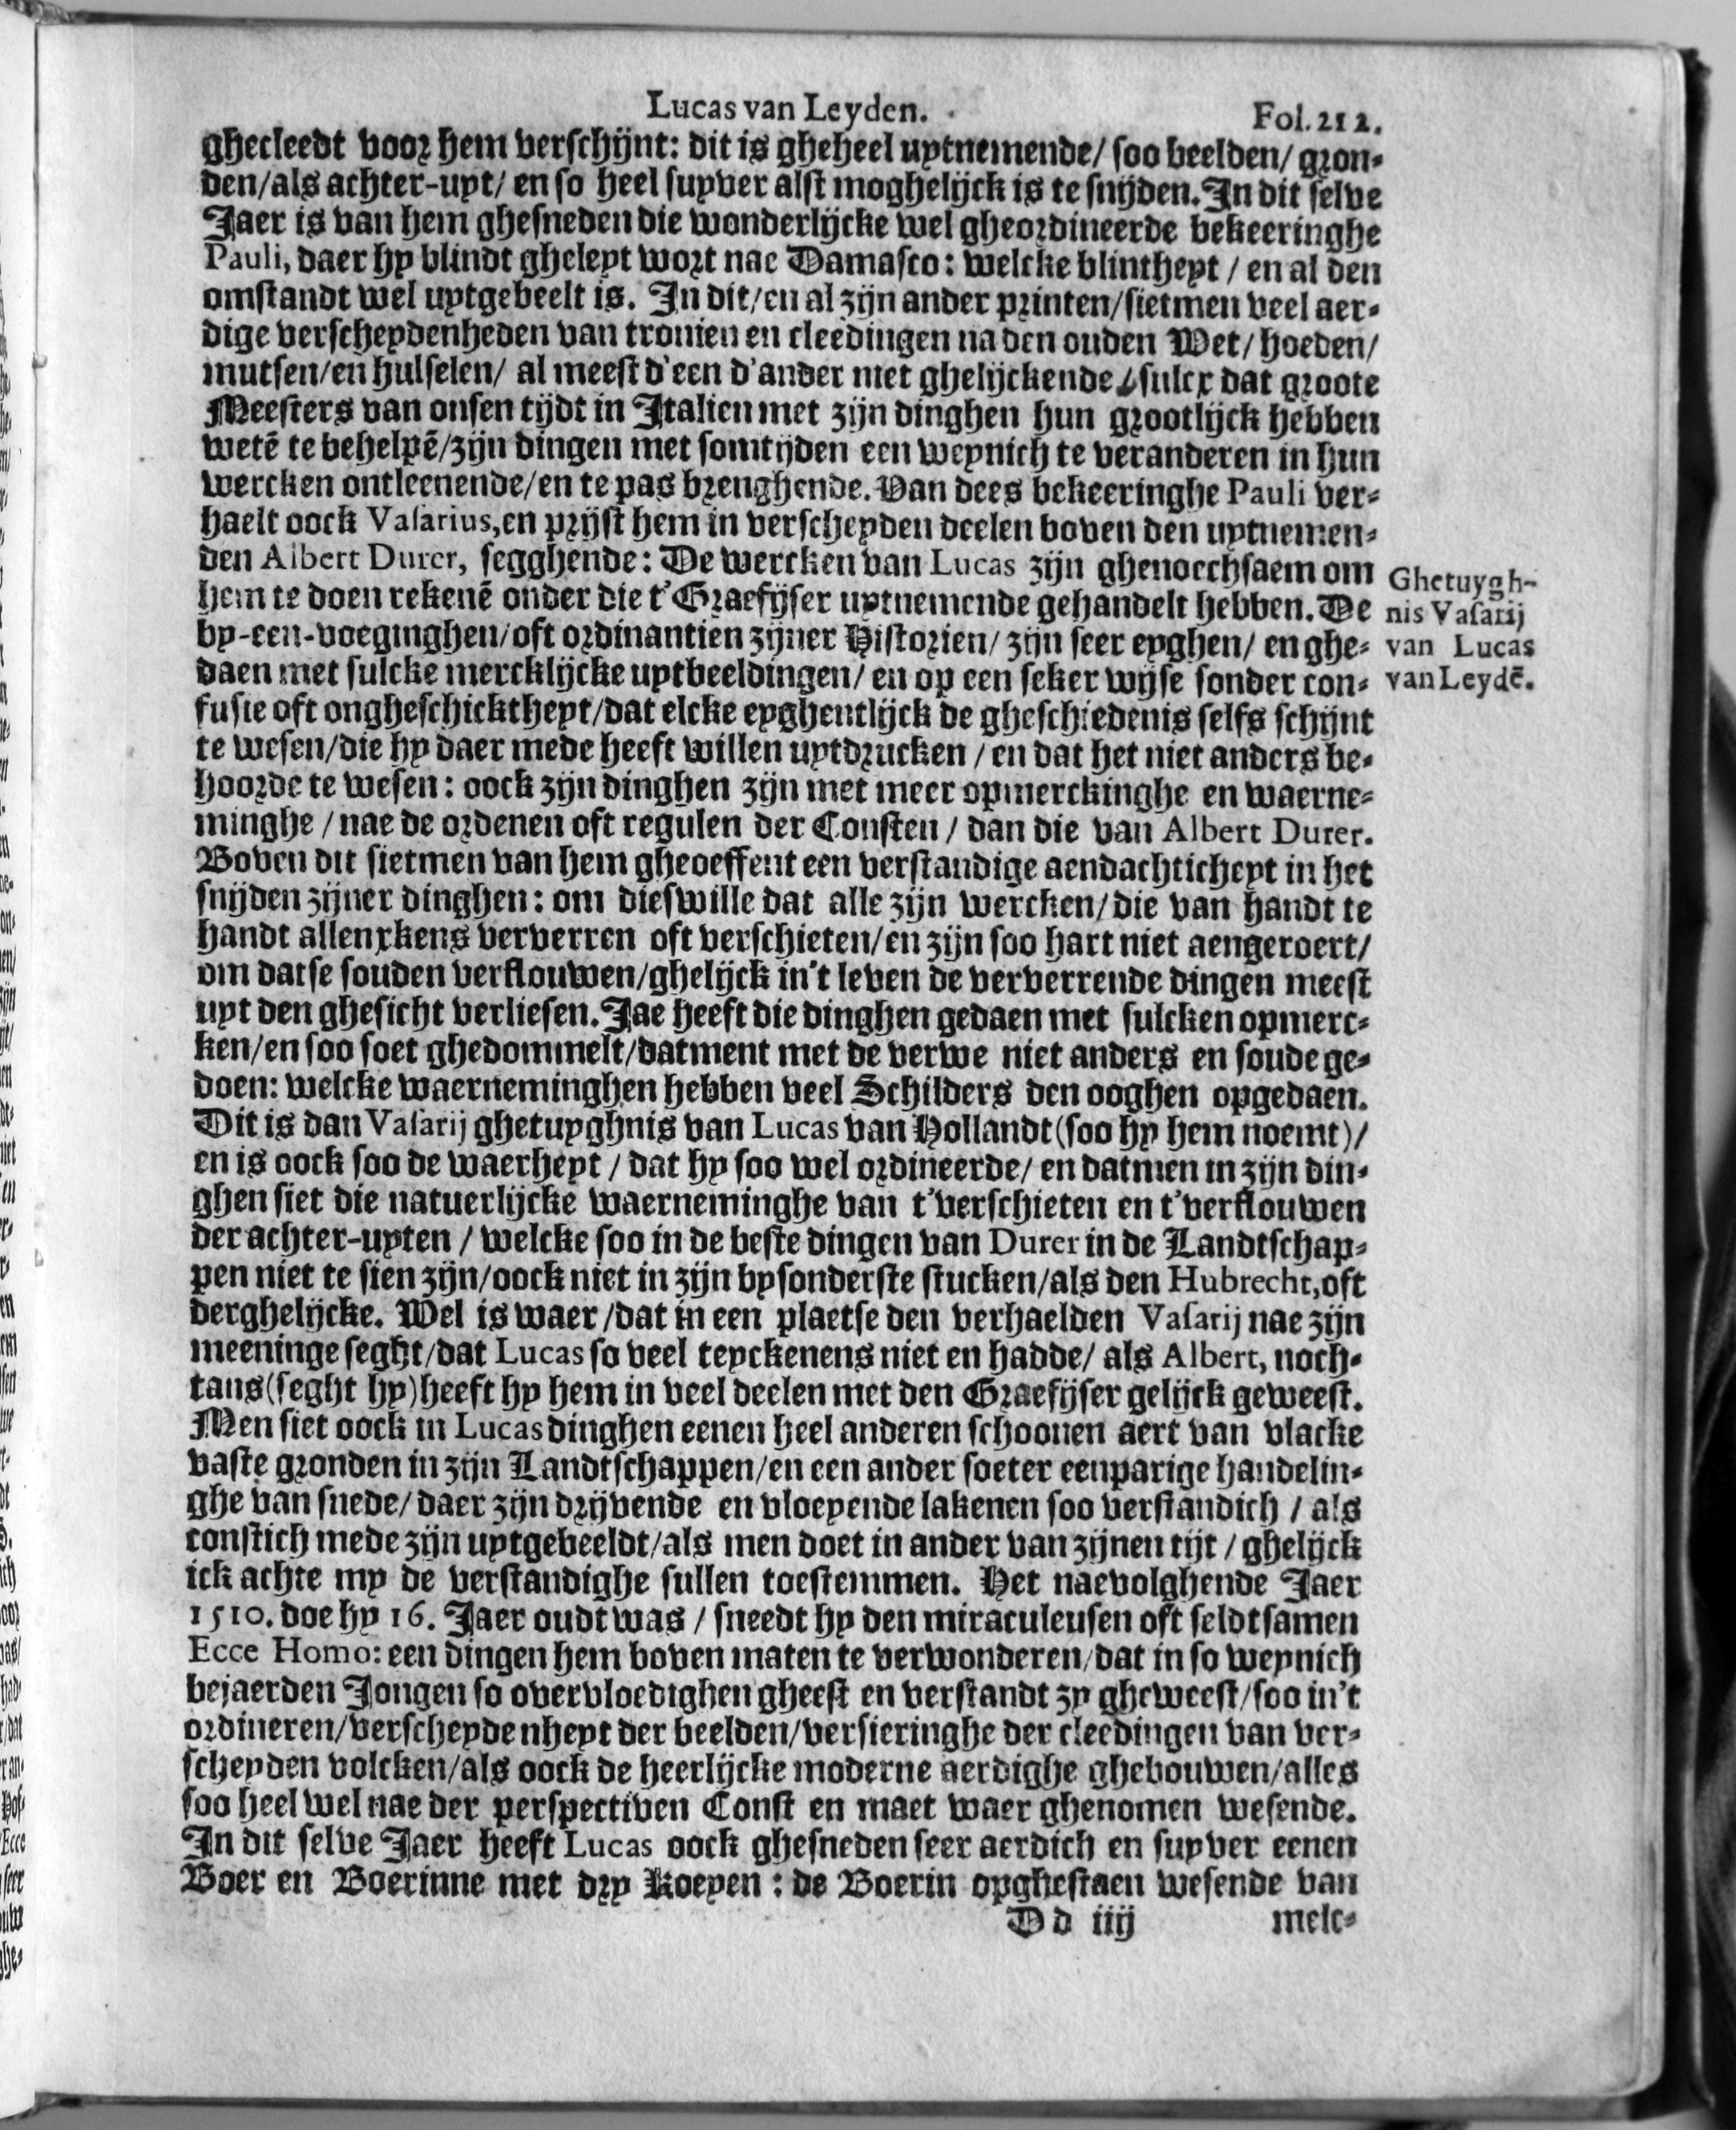 Lucas van Leyden. Fol. 212.
ghecleedt voor hem verschijnt: dit is gheheel uytnemende/ soo beelden/ gron-
den/als achter-uyt/ en so heel suyver alst moghelijck is te snijden. In dit selve
Jaer is van hem ghesneden die wonderlijcke wel gheordineerde bekeeringhe
Pauli, daer hy blindt gheleyt wort nae Damasco: welcke blintheyt / en al den
omstandt wel uytgebeelt is. In dit/en al zijn ander printen/sietmen veel aer-
dige verscheydenheden van tronien en cleedingen na den ouden Wet/ hoeden/
mutsen/en hulselen/ al meest d'een d'ander niet ghelijckende/sulcx dat groote
Meesters van onsen tijdt in Italien met zijn dinghen hun grootlijck hebben
wetē te behelpē/zijn dingen met somtijden een weynich te veranderen in hun
wercken ontleenende/en te pas brenghende. Van dees bekeeringhe Pauli ver-
haelt oock Vasarius,en prijst hem in verscheyden deelen boven den uytnemen-
den Albert Durer, segghende: De wercken van Lucas zijn ghenoechsaem om
hem te doen rekenē onder die t'Graefijser uytnemende gehandelt hebben. De
by-een-voeginghen/oft ordinantien zijner Historien/ zijn seer eyghen/ en ghe-
daen met sulcke mercklijcke uytbeeldingen/ en op een seker wijse sonder con-
fusie oft ongheschicktheyt/dat elcke eyghentlijck de gheschiedenis selfs schijnt
te wesen/die hy daer mede heeft willen uytdrucken / en dat het niet anders be-
hoorde te wesen: oock zijn dinghen zijn met meer opmerckinghe en waerne-
minghe / nae de ordenen oft regulen der Consten / dan die van Albert Durer.
Boven dit sietmen van hem gheoeffent een verstandige aendachticheyt in het
snijden zijner dinghen: om dieswille dat alle zijn wercken/die van handt te
handt allenxkens ververren oft verschieten/en zijn soo hart niet aengeroert/
om datse souden verflouwen/ghelijck in't leven de ververrende dingen meest
uyt den ghesicht verliesen. Jae heeft die dinghen gedaen met sulcken opmerc-
ken/en soo soet ghedommelt/datment met de verwe niet anders en soude ge-
doen: welcke waerneminghen hebben veel Schilders den ooghen opgedaen.
Dit is dan Vasarij ghetuyghnis van Lucas van Hollandt(soo hy hem noemt)/
en is oock soo de waerheyt / dat hy soo wel ordineerde/ en datmen in zijn din-
ghen siet die natuerlijcke waerneminghe van t'verschieten en t'verflouwen
der achter-uyten / welcke soo in de beste dingen van Durer in de Landtschap-
pen niet te sien zijn/oock niet in zijn bysonderste stucken/als den Hubrecht,oft
derghelijcke. Wel is waer /dat in een plaetse den verhaelden Vasarij nae zijn
meeninge seght/dat Lucas so veel teyckenens niet en hadde/ als Albert, noch-
tans(seght hy)heeft hy hem in veel deelen met den Graefijser gelijck geweest.
Men siet oock in Lucas dinghen eenen heel anderen schoonen aert van vlacke
vaste gronden in zijn Landtschappen/en een ander soeter eenparige handelin-
ghe van snede/ daer zijn drijvende en vloeyende lakenen soo verstandich / als
constich mede zijn uytgebeeldt/als men doet in ander van zijnen tijt / ghelijck
ick achte my de verstandighe sullen toestemmen. Het naevolghende Jaer
1510. doe hy 16. Jaer oudt was / sneedt hy den miraculeusen oft seldtsamen
Ecce Homo: een dingen hem boven maten te verwonderen/dat in so weynich
bejaerden Jongen so overvloedighen gheest en verstandt zy gheweest/soo in't
ordineren/verscheydenheyt der beelden/versieringhe der cleedingen van ver-
scheyden volcken/als oock de heerlijcke moderne aerdighe ghebouwen/alles
soo heel wel nae der perspectiven Const en maet waer ghenomen wesende.
In dit selve Jaer heeft Lucas oock ghesneden seer aerdich en suyver eenen
Boer en Boerinne met dry Koeyen: de Boerin opghestaen wesende van
Dd iiij melc-
Ghetuygh-
nis Vasarij
van Lucas
van Leydē.